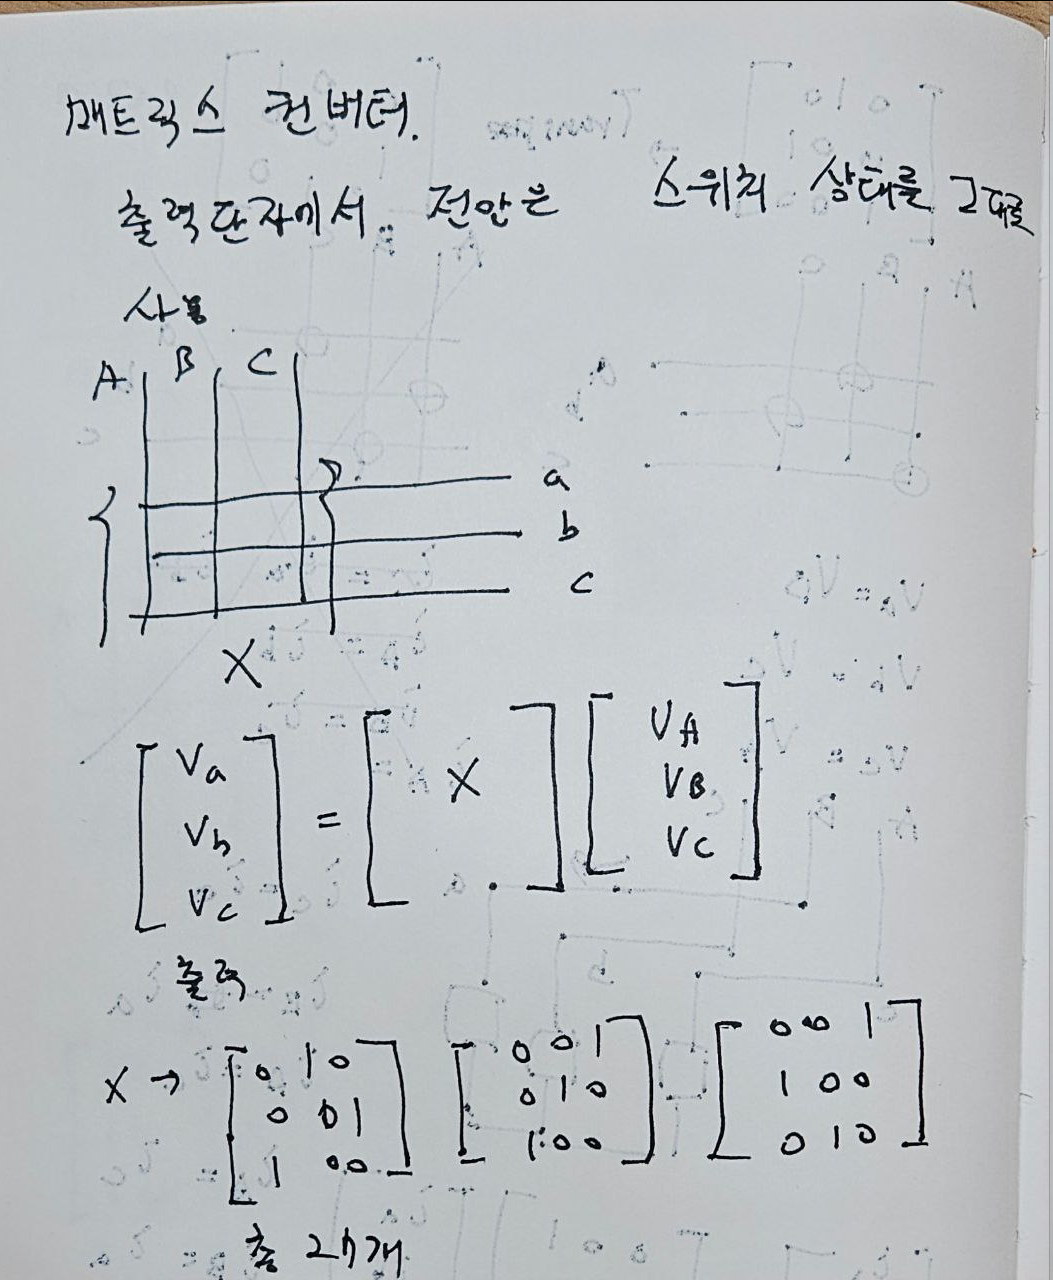 매트릭스 컨버터.
출력단자에서 전압은 스위치 상태를 그대로
사용
A B C
a
b
c
X
[Va Vb Vc] = [X] [VA VB VC]
출력
X → [0 1 0] [0 0 1] [0 0 1]
[0 0 1] [0 1 0] [1 0 0]
[1 0 0] [1 0 0] [0 1 0]
총 27개